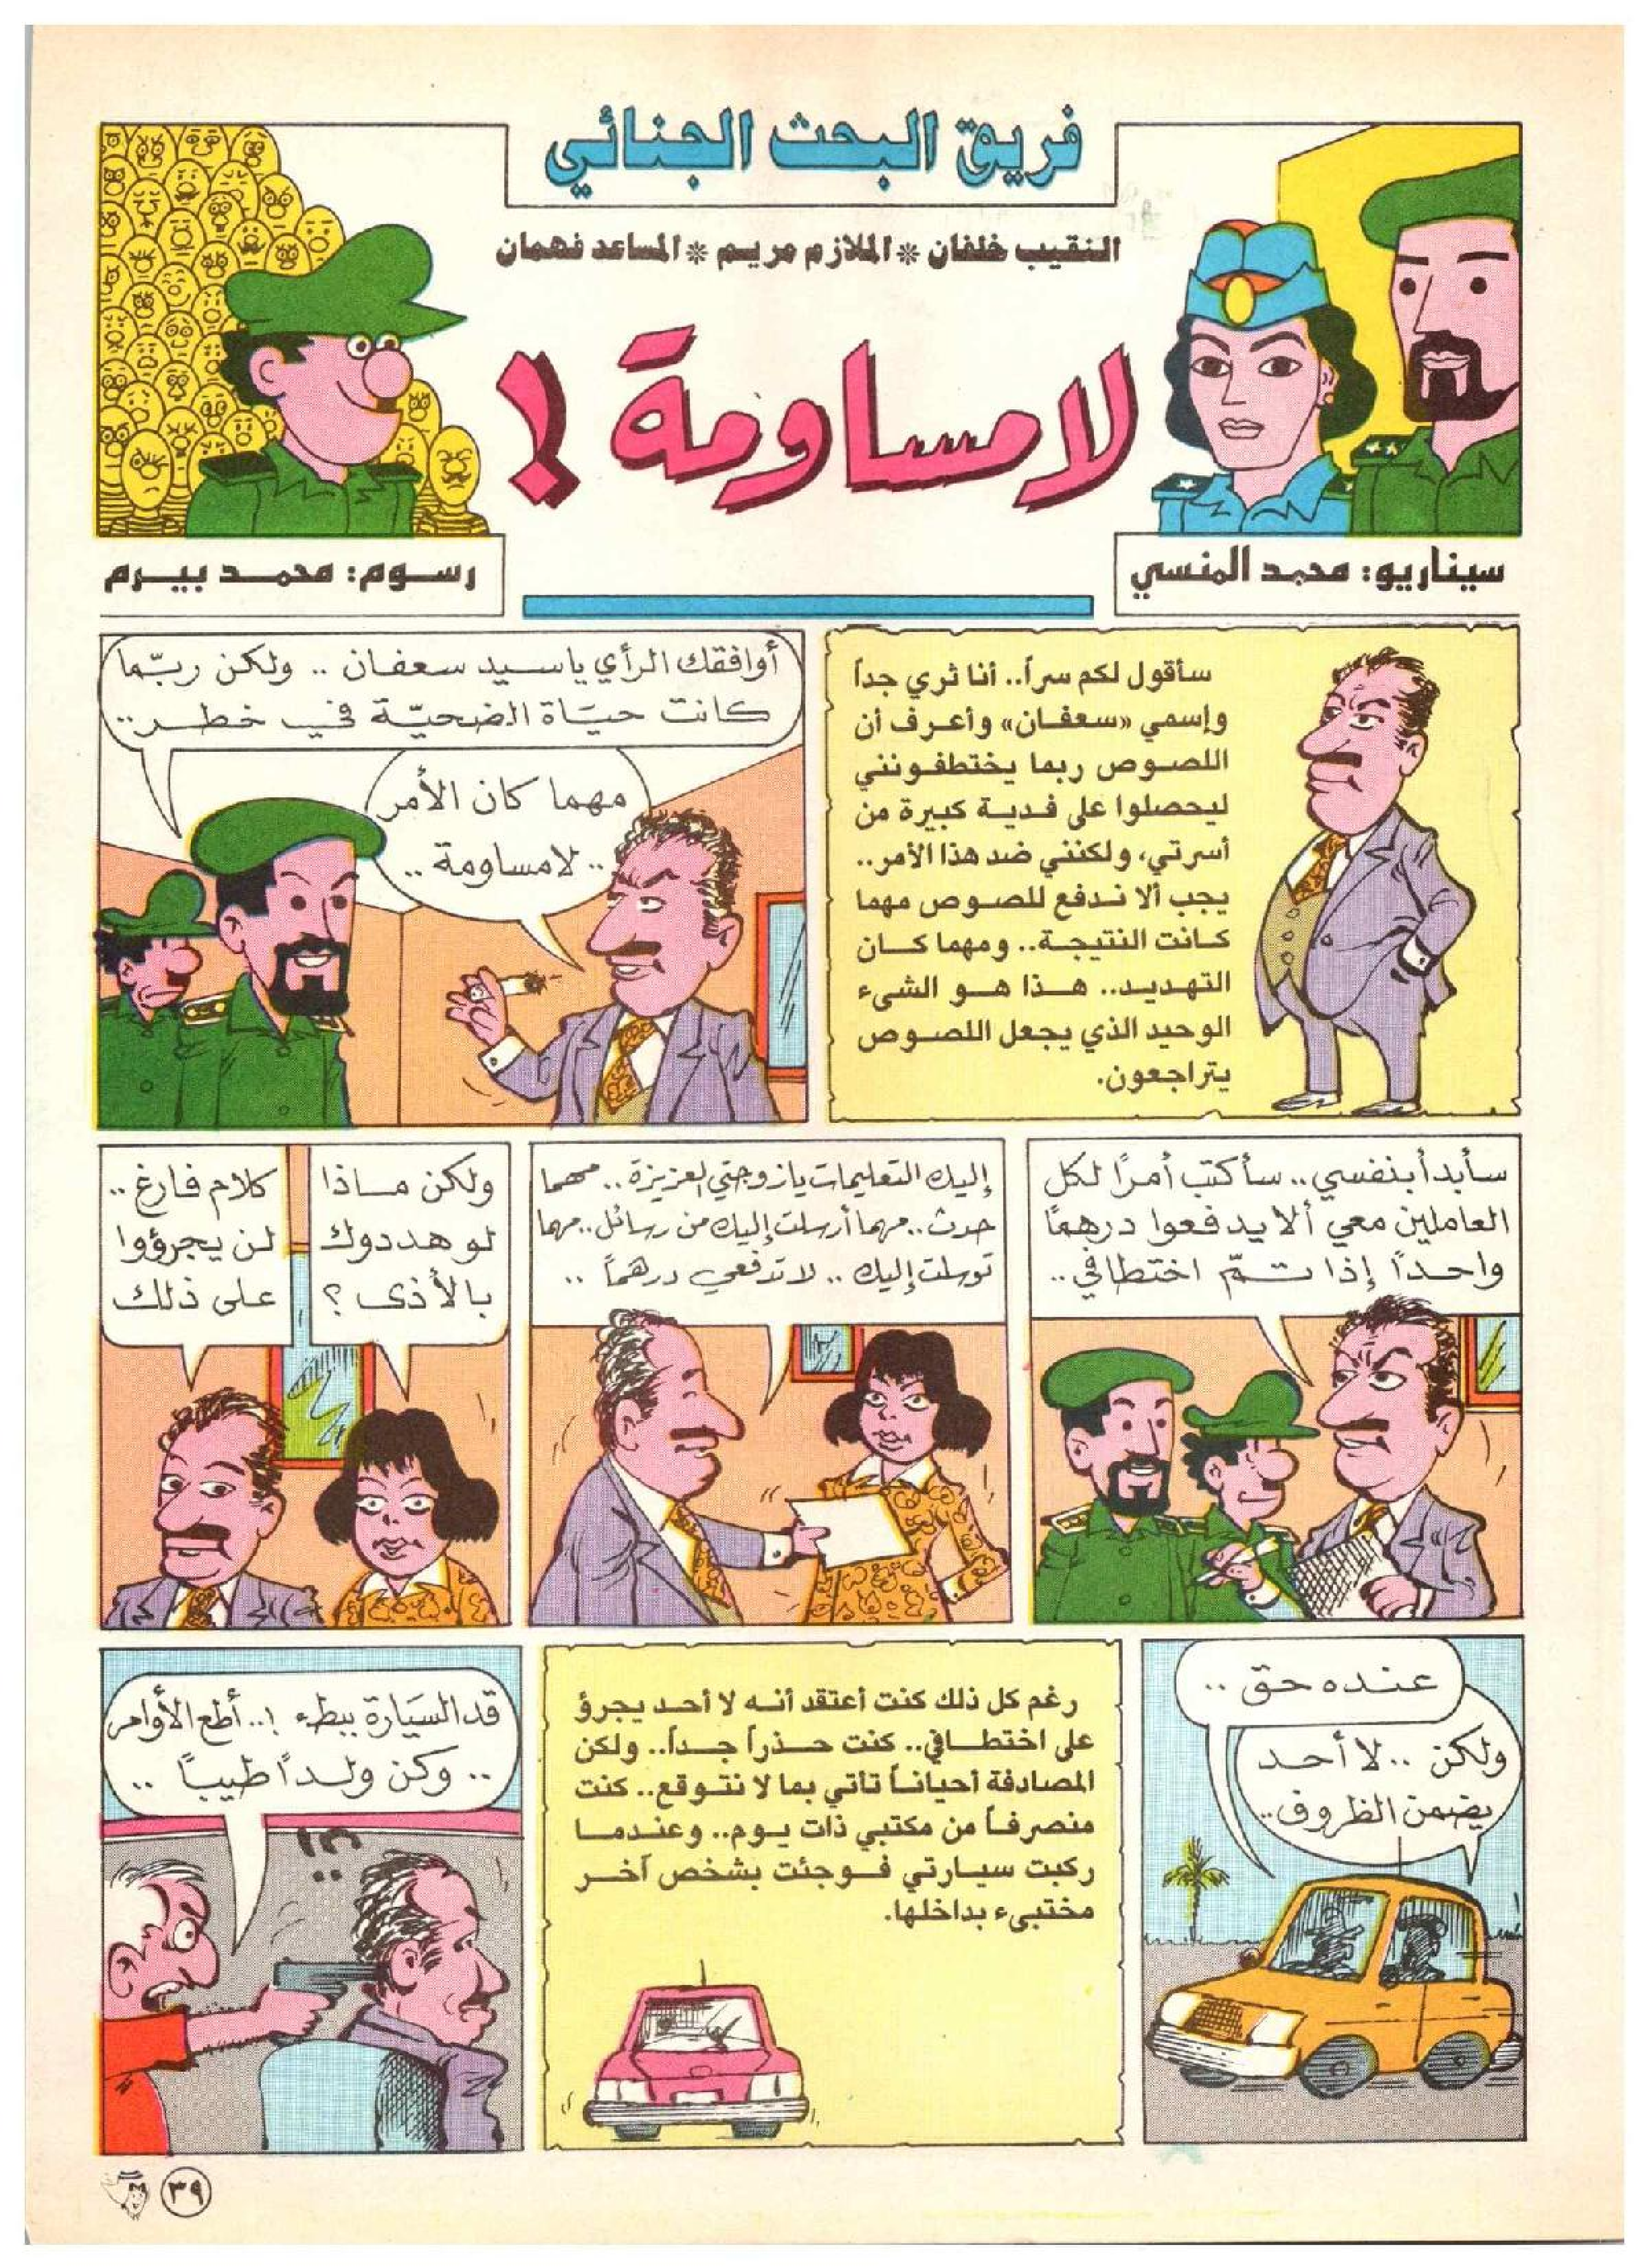 فريق البحث الجنائي
النقيب خلفان * الملازم مريم * المساعد فهمان
لا مساومة !
سيناريو: محمد المنسي
رسوم: محمد بيرم
سأقول لكم سراً.. أنا ثري جداً
وإسمي «سعفان» وأعرف أن
اللصوص ربما يختطفونني
ليحصلوا على فدية كبيرة من
أسرتي، ولكنني ضد هذا الأمر..
يجب ألا ندفع للصوص مهما
كانت النتيجة.. ومهما كان
التهديد.. هذا هو الشىء
الوحيد الذي يجعل اللصوص
يتراجعون.
أوافقك الرأي ياسيد سعفان .. ولكن ربّما
كانت حيَاة الضحيّة في خطر..
مهما كان الأمر
.. لامساومة ..
سأبدأ بنفسي.. سأكتب أمرًا لكل
العاملين معي ألا يدفعوا درهمًا
واحداً إذا تمّ اختطافي..
إليك التعليمات يازوجتي العزيزة.. مهما
حدث.. مهما أرسلت إليك من رسائل.. مهما
توسلت إليك .. لا تدفعي درهماً ..
ولكن ماذا
لو هددوك
بالأذى ؟
كلام فارغ ..
لن يجرؤوا
على ذلك
عنده حق ..
ولكن .. لا أحد
يضمن الظروف..
رغم كل ذلك كنت أعتقد أنه لا أحد يجرؤ
على اختطافي.. كنت حذراً جداً.. ولكن
المصادفة أحياناً تأتي بما لا نتوقع.. كنت
منصرفاً من مكتبي ذات يوم.. وعندما
ركبت سيارتي فوجئت بشخص آخر
مختبىء بداخلها.
قد السيَارة ببطء !.. أطع الأوامر
.. وكن ولداً طيباً ..
!؟
٣٩